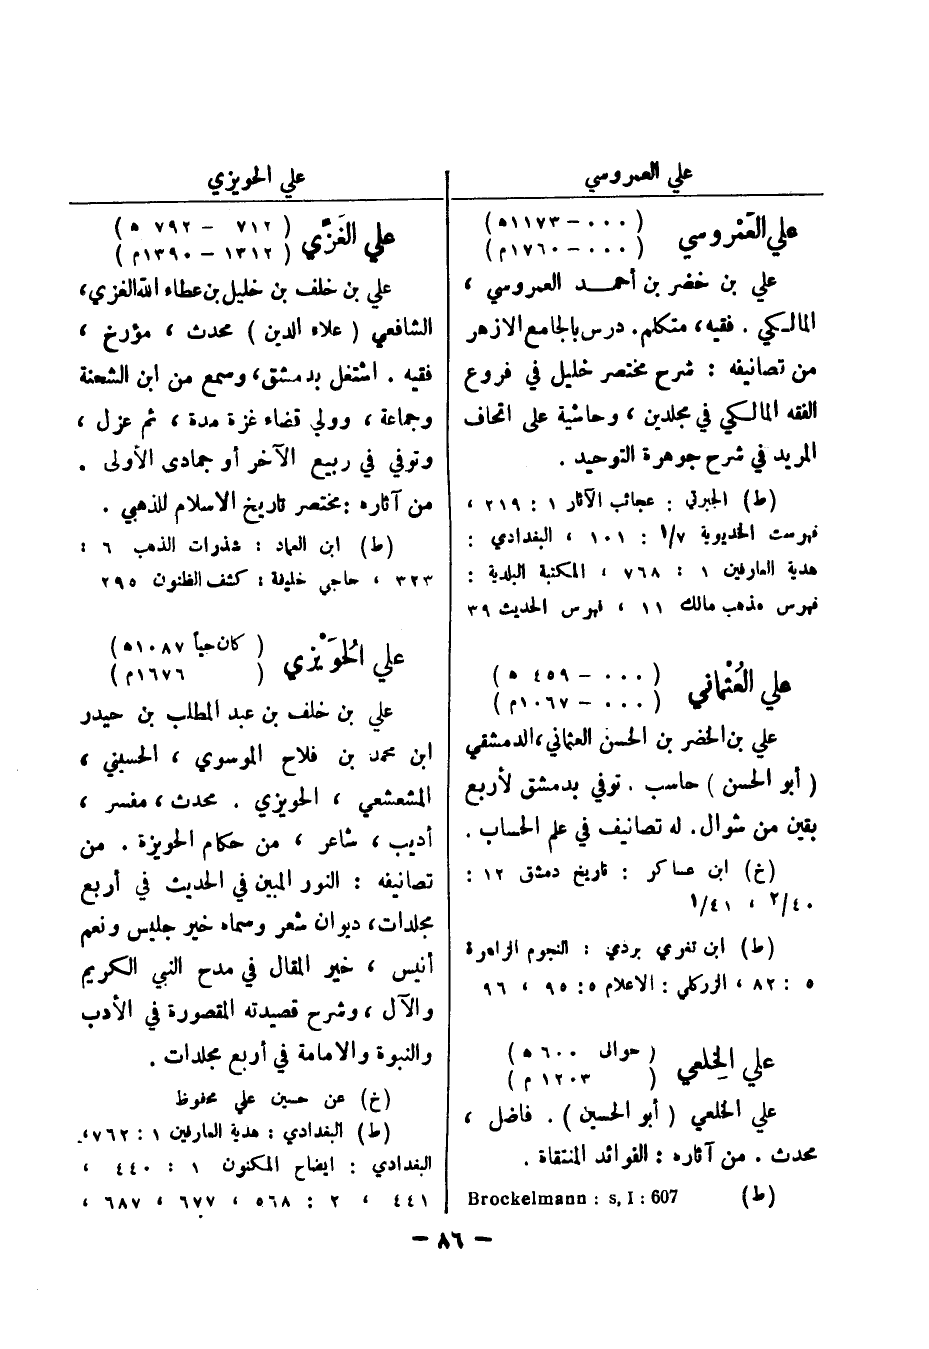 علي العمروسي
علي العَمْروسي (٠٠٠ – ١١٧٣ ه)
(٠٠٠ – ١٧٦٠ م)
علي بن خضر بن أحمد العمروسي ،
المالكي . فقيه، متكلم. درس بالجامع الازهر
من تصانيفه : شرح مختصر خليل في فروع
الفقه المالكي في مجلدين ، وحاشية على اتحاف
المريد في شرح جوهرة التوحيد .
(ط) الجبرتي : عجائب الآثار ١ : ٢١٩ ،
فهرست الخديوية ٧/١ : ١٠١ ، البغدادي :
هدية العارفين ١ : ٧٦٨ ، المكتبة البلدية :
فهرس مذهب مالك ١١ ، فهرس الحديث ٣٩
علي العُثْماني (٠٠٠ – ٤٥٩ ه)
(٠٠٠ – ١٠٦٧ م)
علي بن الخضر بن الحسن العثماني، الدمشقي
( أبو الحسن ) حاسب . توفي بدمشق لأربع
بقين من شوال. له تصانيف في علم الحساب .
(خ) ابن عساكر : تاريخ دمشق ١٢ :
٢/٤٠ ، ١/٤١
(ط) ابن تغري بردي : النجوم الزاهرة
٥ : ٨٢ ، الزركلي : الاعلام ٥ : ٩٥ ، ٩٦
علي الخِلعي (حوالى ٦٠٠ ه)
(١٢٠٣ م)
علي الخلعي ( أبو الحسين ) . فاضل ،
محدث . من آثاره : الفوائد المنتقاة .
(ط) Brockelmann : s, I : 607
علي الحويزي
علي الغَزّي (٧١٢ – ٧٩٢ ه)
(١٣١٢ – ١٣٩٠ م)
علي بن خلف بن خليل بن عطاء الله الغزي،
الشافعي ( علاء الدين ) محدث ، مؤرخ ،
فقيه . اشتغل بدمشق، وسمع من ابن الشحنة
وجماعة ، وولي قضاء غزة مدة ، ثم عزل ،
وتوفي في ربيع الآخر أو جمادى الأولى .
من آثاره : مختصر تاريخ الاسلام للذهبي .
(ط) ابن العماد : شذرات الذهب ٦ :
٣٢٣ ، حاجي خليفة : كشف الظنون ٢٩٥
علي الحُوَيْزي (كان حياً ١٠٨٧ ه)
(١٦٧٦ م)
علي بن خلف بن عبد المطلب بن حيدر
ابن محمد بن فلاح الموسوي ، الحسيني ،
المشعشعي ، الحويزي . محدث ، مفسر ،
أديب ، شاعر ، من حكام الحويزة . من
تصانيفه : النور المبين في الحديث في أربع
مجلدات، ديوان شعر وسماه خير جليس ونعم
أنيس ، خير المقال في مدح النبي الكريم
والآل ، وشرح قصيدته المقصورة في الأدب
والنبوة والامامة في أربع مجلدات .
(خ) عن حسين علي محفوظ
(ط) البغدادي : هدية العارفين ١ : ٧٦٢،
البغدادي : ايضاح المكنون ١ : ٤٤٠ ،
٤٤١ ، ٢ : ٥٦٨ ، ٦٧٧ ، ٦٨٧ ،
– ٨٦ –